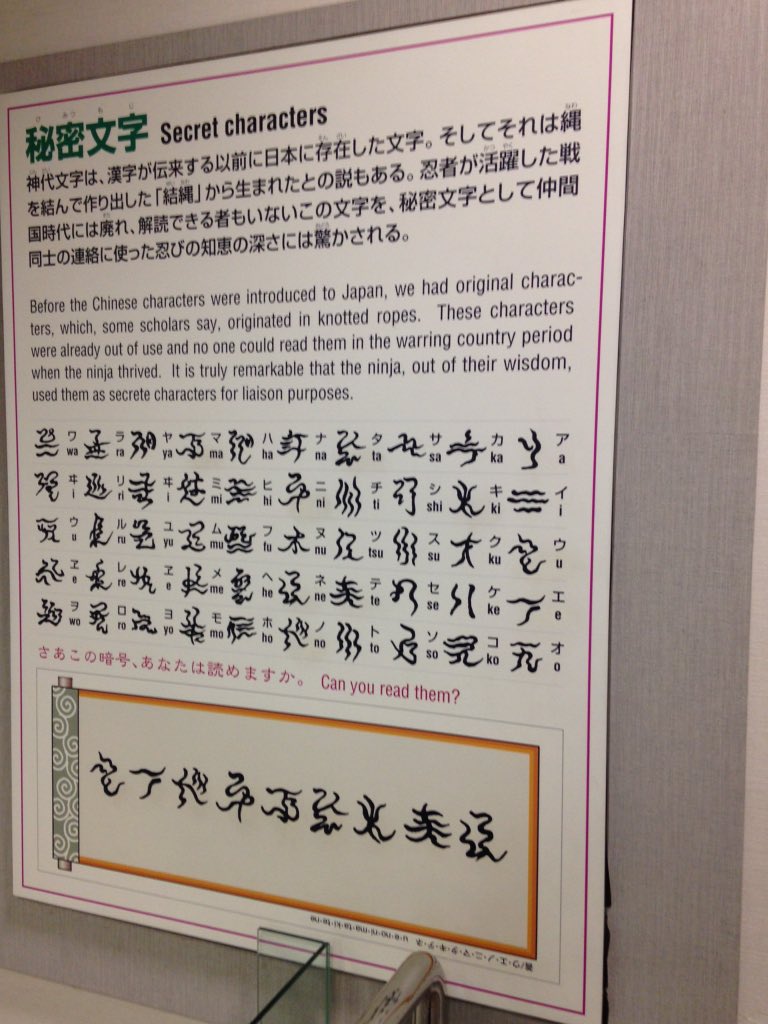 ひ みつ も じ
秘密文字 Secret characters
神代文字は、漢字が伝来する以前に日本に存在した文字。そしてそれは縄
を結んで作り出した「結縄」から生まれたとの説もある。忍者が活躍した戦
国時代には廃れ、解読できる者もいないこの文字を、秘密文字として仲間
同士の連絡に使った忍びの知恵の深さには驚かされる。
Before the Chinese characters were introduced to Japan, we had original charac-
ters, which, some scholars say, originated in knotted ropes. These characters
were already out of use and no one could read them in the warring country period
when the ninja thrived. It is truly remarkable that the ninja, out of their wisdom,
used them as secrete characters for liaison purposes.
ワ ラ ヤ マ ハ ナ タ サ カ ア
wa ra ya ma ha na ta sa ka a
ヰ リ ヰ ミ ヒ ニ チ シ キ イ
i ri i mi hi ni ti shi ki i
ウ ル ユ ム フ ヌ ツ ス ク ウ
u ru yu mu fu nu tsu su ku u
ヱ レ ヱ メ ヘ ネ テ セ ケ エ
e re e me he ne te se ke e
ヲ ロ ヨ モ ホ ノ ト ソ コ オ
wo ro yo mo ho no to so ko o
さあこの暗号、あなたは読めますか。 Can you read them?
答/ウ・エ・ノ・ニ・マ・タ・キ・テ・ネ
u-e-no-ni-ma-ta-ki-te-ne